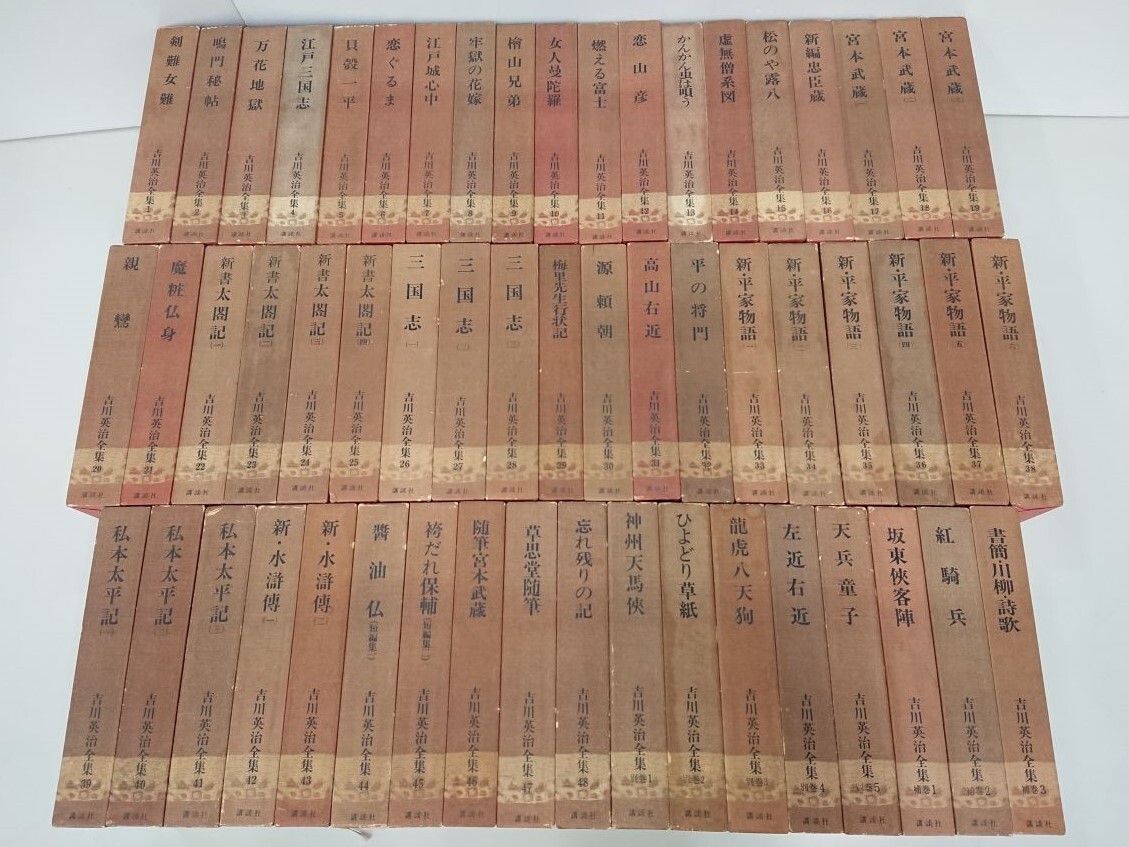 剣難女難 吉川英治全集 1 講談社
鳴門秘帖 吉川英治全集 2 講談社
万花地獄 吉川英治全集 3 講談社
江戸三国志 吉川英治全集 4 講談社
貝殻一平 吉川英治全集 5 講談社
恋ぐるま 吉川英治全集 6 講談社
江戸城心中 吉川英治全集 7 講談社
牢獄の花嫁 吉川英治全集 8 講談社
檜山兄弟 吉川英治全集 9 講談社
女人曼陀羅 吉川英治全集 10 講談社
燃える富士 吉川英治全集 11 講談社
恋山彦 吉川英治全集 12 講談社
かんかん虫は唄う 吉川英治全集 13 講談社
虚無僧系図 吉川英治全集 14 講談社
松のや露八 吉川英治全集 15 講談社
新編忠臣蔵 吉川英治全集 16 講談社
宮本武蔵(一) 吉川英治全集 17 講談社
宮本武蔵(二) 吉川英治全集 18 講談社
宮本武蔵(三) 吉川英治全集 19 講談社
親鸞 吉川英治全集 20 講談社
魔粧仏身 吉川英治全集 21 講談社
新書太閤記(一) 吉川英治全集 22 講談社
新書太閤記(二) 吉川英治全集 23 講談社
新書太閤記(三) 吉川英治全集 24 講談社
新書太閤記(四) 吉川英治全集 25 講談社
三国志(一) 吉川英治全集 26 講談社
三国志(二) 吉川英治全集 27 講談社
三国志(三) 吉川英治全集 28 講談社
梅里先生行状記 吉川英治全集 29 講談社
源頼朝 吉川英治全集 30 講談社
高山右近 吉川英治全集 31 講談社
平の将門 吉川英治全集 32 講談社
新・平家物語(一) 吉川英治全集 33 講談社
新・平家物語(二) 吉川英治全集 34 講談社
新・平家物語(三) 吉川英治全集 35 講談社
新・平家物語(四) 吉川英治全集 36 講談社
新・平家物語(五) 吉川英治全集 37 講談社
新・平家物語(六) 吉川英治全集 38 講談社
私本太平記(一) 吉川英治全集 39 講談社
私本太平記(二) 吉川英治全集 40 講談社
私本太平記(三) 吉川英治全集 41 講談社
新・水滸傳(一) 吉川英治全集 42 講談社
新・水滸傳(二) 吉川英治全集 43 講談社
醬油仏(短編集一) 吉川英治全集 44 講談社
袴だれ保輔(短編集二) 吉川英治全集 45 講談社
随筆宮本武蔵 吉川英治全集 46 講談社
草思堂随筆 吉川英治全集 47 講談社
忘れ残りの記 吉川英治全集 48 講談社
神州天馬俠 吉川英治全集 別巻1 講談社
ひよどり草紙 吉川英治全集 別巻2 講談社
龍虎八天狗 吉川英治全集 別巻3 講談社
左近右近 吉川英治全集 別巻4 講談社
天兵童子 吉川英治全集 別巻5 講談社
坂東俠客陣 吉川英治全集 補巻1 講談社
紅騎兵 吉川英治全集 補巻2 講談社
書簡・川柳・詩歌 吉川英治全集 補巻3 講談社